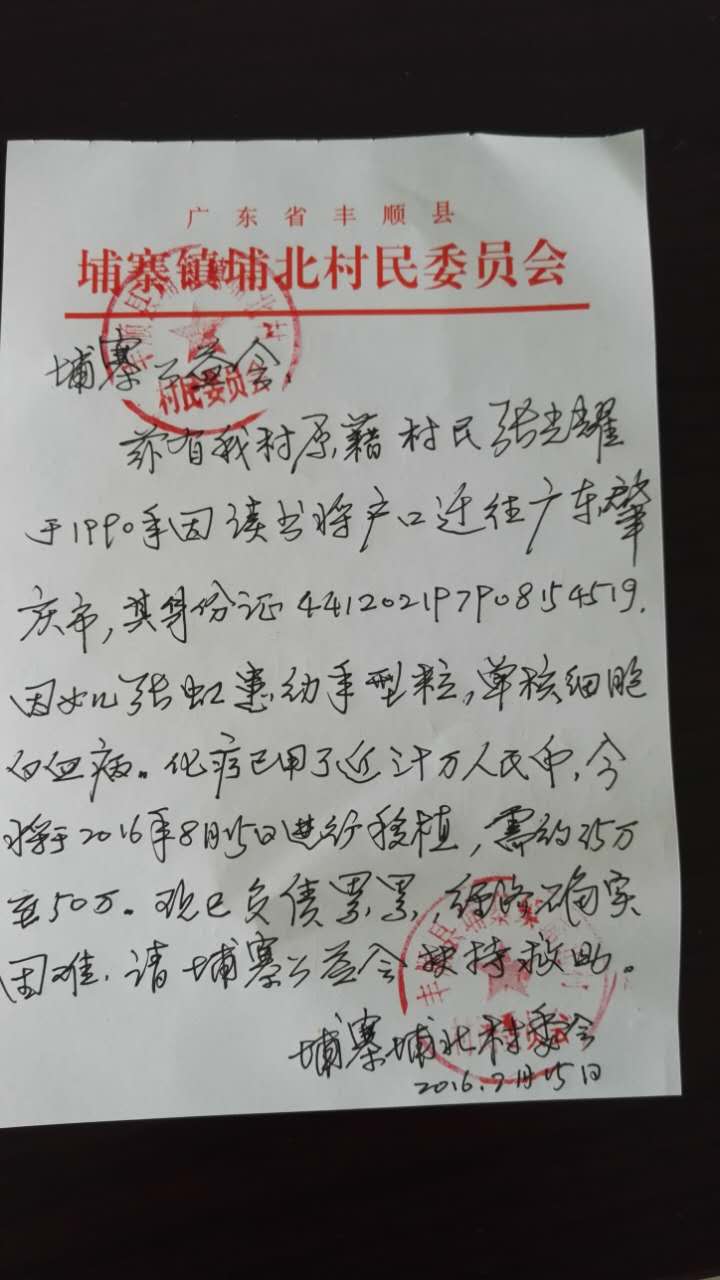 广东省丰顺县
埔寨镇埔北村民委员会
埔寨公益会,
兹有我村原籍村民张光耀
于1990年因读书将户口迁往广东肇
庆市,其身份证441202197908154519.
因女儿张虹患幼年型粒,单核细胞
白血病。化疗已用了近计万人民币,今
将于2016年8月15日进行移植,需约35万
至50万。现已负债累累,经济确实
困难,请埔寨公益会扶持救助。
埔寨埔北村委会
2016.7月15日
村民委员会